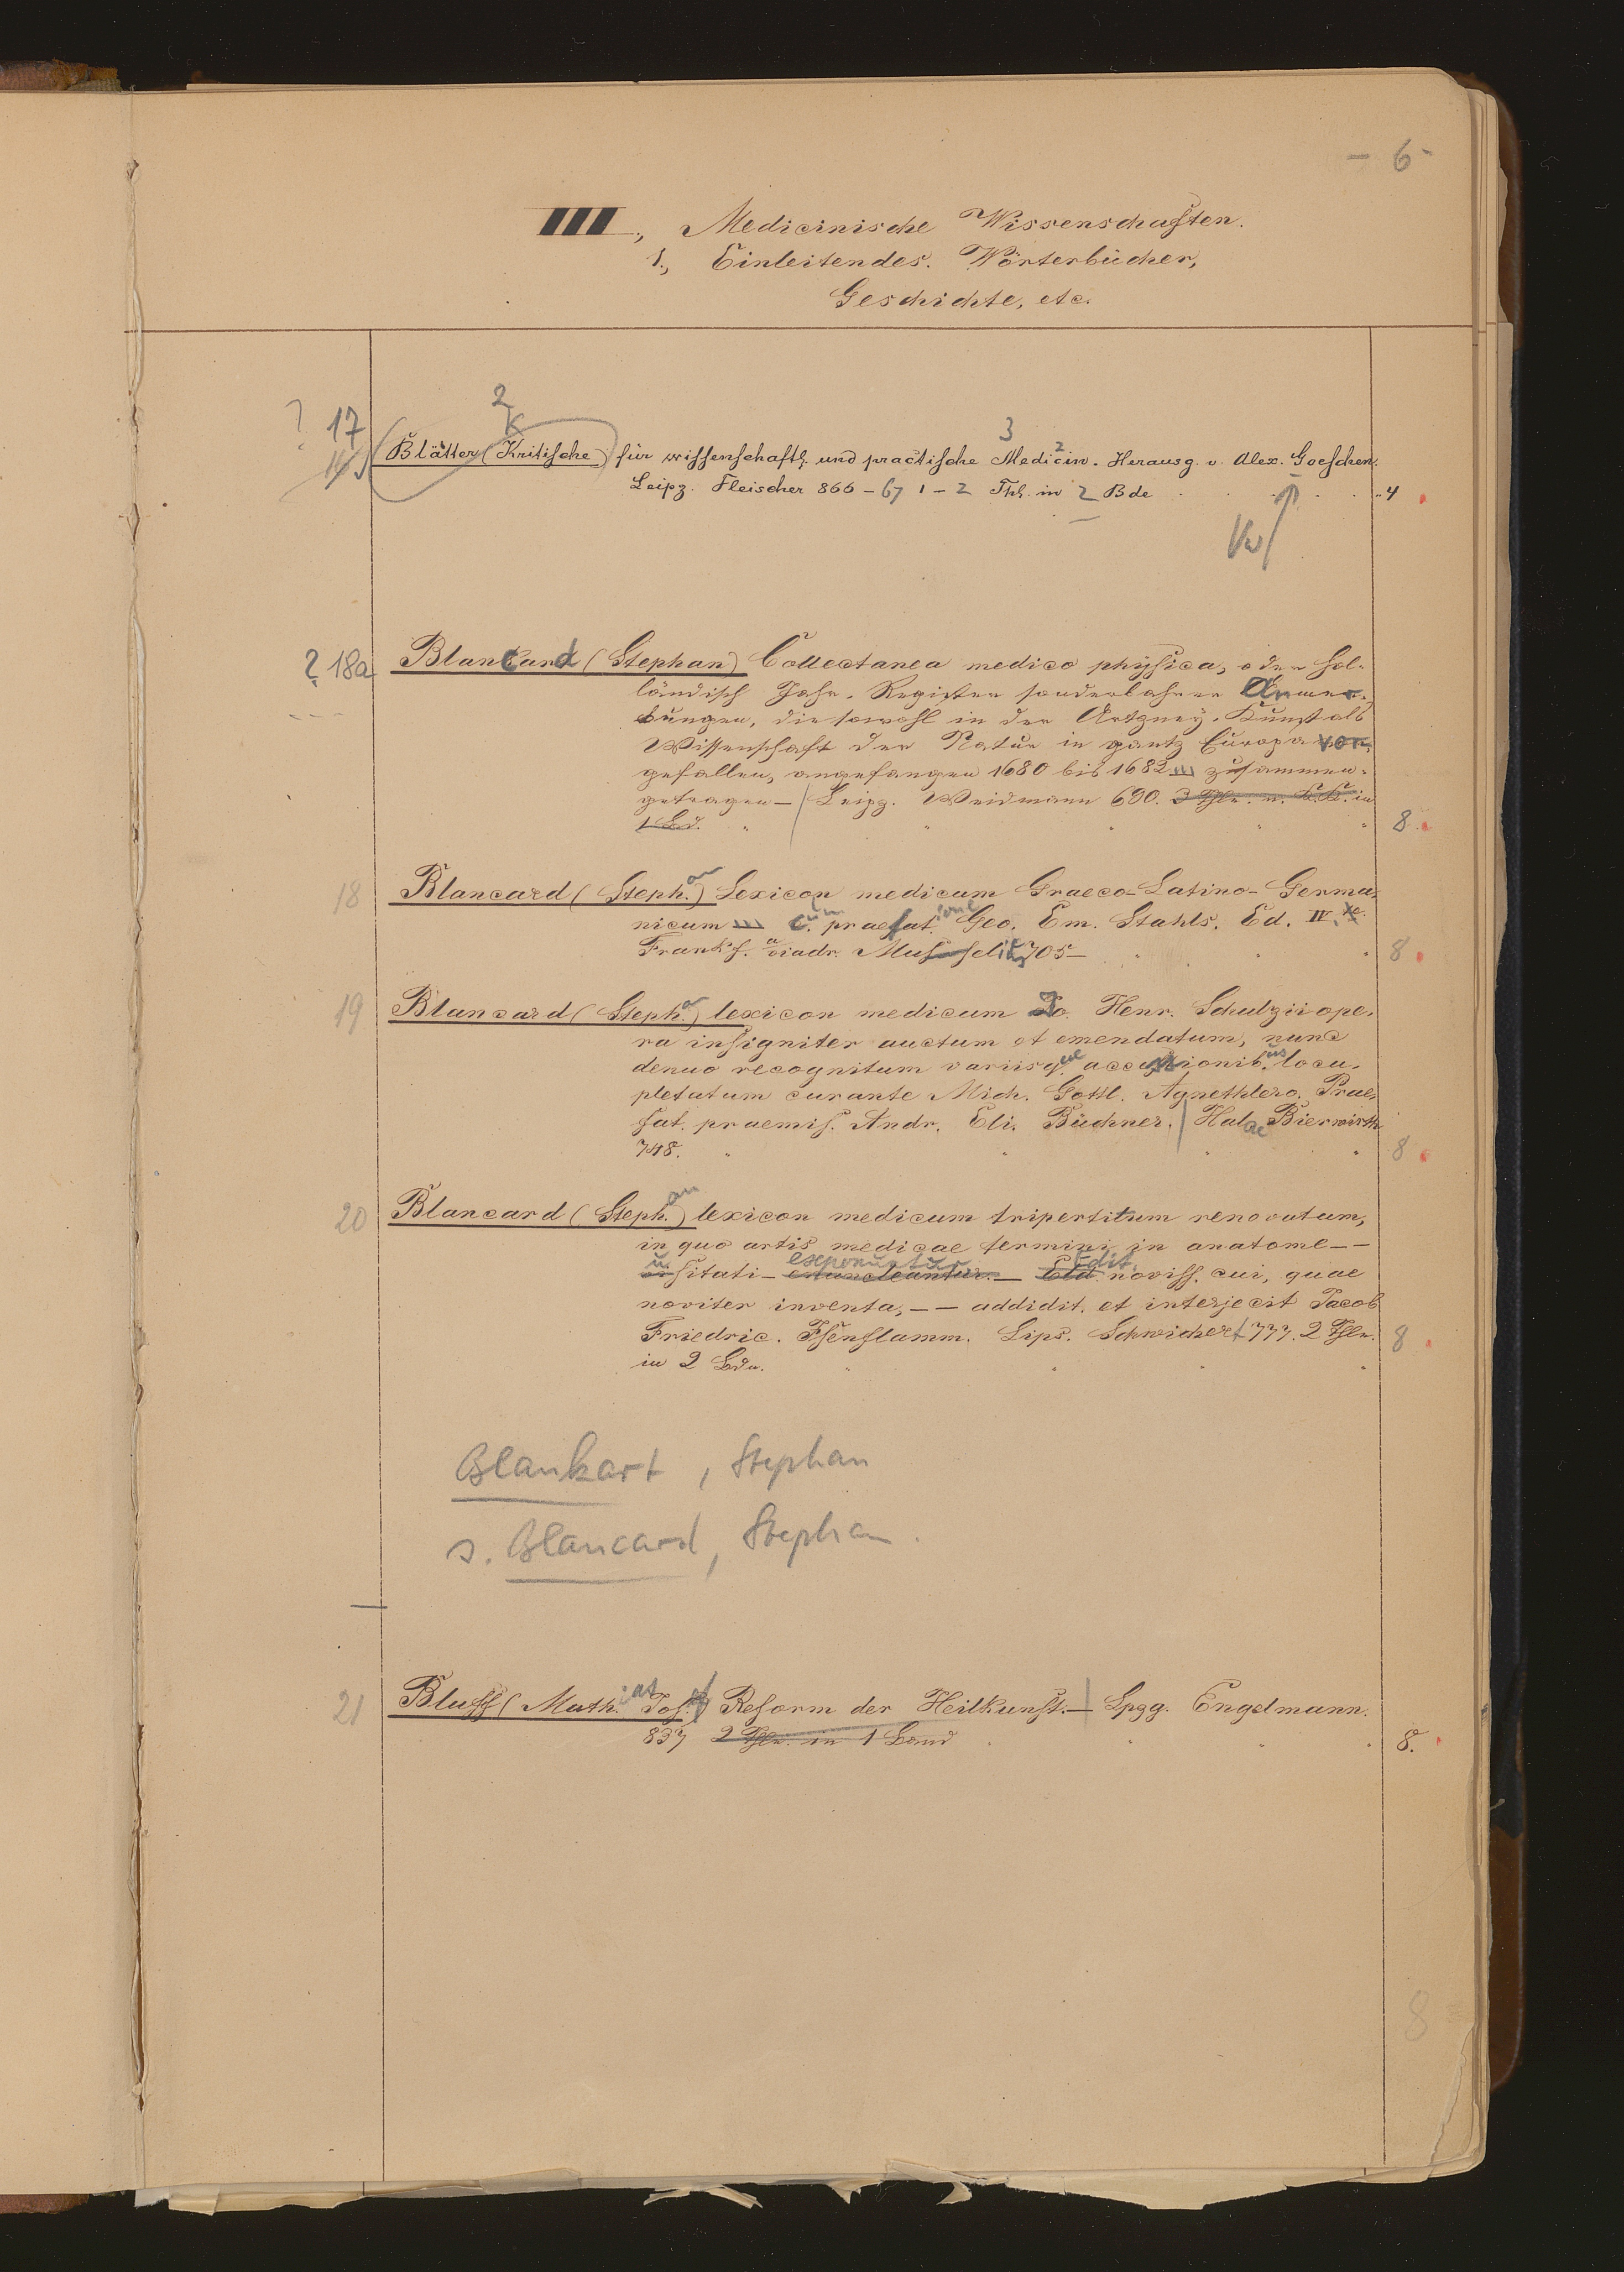 - 6 -
III., Medicinische Wissenschaften.
1., Einleitendes. Wörterbücher,
Geschichte, etc.
2
K
3
? 17
Blätter (Kritische) für wissenschaftl. und practische Medicin. Herausg. v. Alex. Goeschen.
Leipz. Fleischer 866-67 1-2 Thl. in 2 Bde 4
? 18a Blancard (Stephan) Collectanea medico physica, oder Hol-
ländisch Jahr-Register sonderbahrer Anmer-
kungen, die sowohl in der Artzney-Kunst als
Wissenschaft der Natur in gantz Europa vor-
gefallen, angefangen 1680 bis 1682 zusammen-
getragen — Leipz. Weidmann 690. 3 Thle. in
1 Bd. 8
18 Blancard (Stephan) Lexicon medicum Graeco-Latino-Germa-
nicum cum praefatione Geo. Em. Stahls. Ed. IV.
Frankf. a viadr. 705 — 8
19 Blancard (Steph.) lexicon medicum Jo. Henr. Schulzii ope-
ra insigniter auctum et emendatum, nunc
denuo recognitum variisque accessionibus locu-
pletatum curante Mich. Gottl. Agnethlero. Prae-
fat. praemis. Andr. Eli. Büchner. Halae Bierwirth
748. 8
20 Blancard (Stephan) lexicon medicum tripertitum renovatum,
in quo artis medicae termini in anatome — —
usitati — enucleantur exponuntur — Edit. noviss. cui, quae
noviter inventa, — — addidit. et interjecit Jacob
Friedric. Isenflamm. Lips. Schwickert 777. 2 Thle. 8
in 2 Bdn.
Blankart, Stephan
s. Blancard, Stephan.
21 Bluff (Mathias Jos.) Reform der Heilkunst. — Lpzg. Engelmann.
837 2 Thle. in 1 Band 8.
8